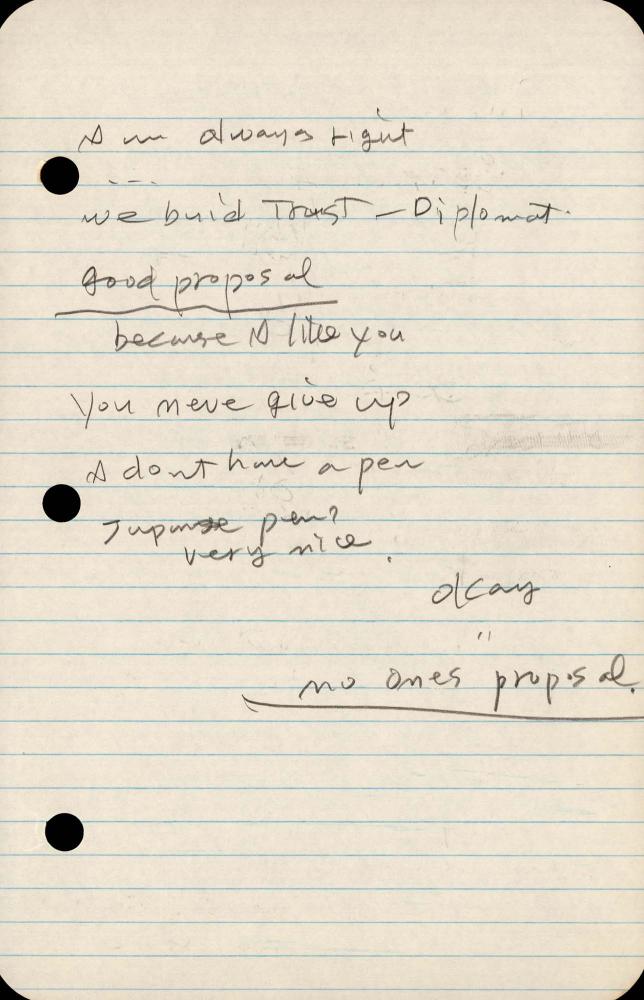 I m always right
- - -
we buid Trust – Diplomat.
good proposal
because I like you
You neve give up
I dont have a pen
Japanese pen?
very nice.
okay
"
no ones proposal.